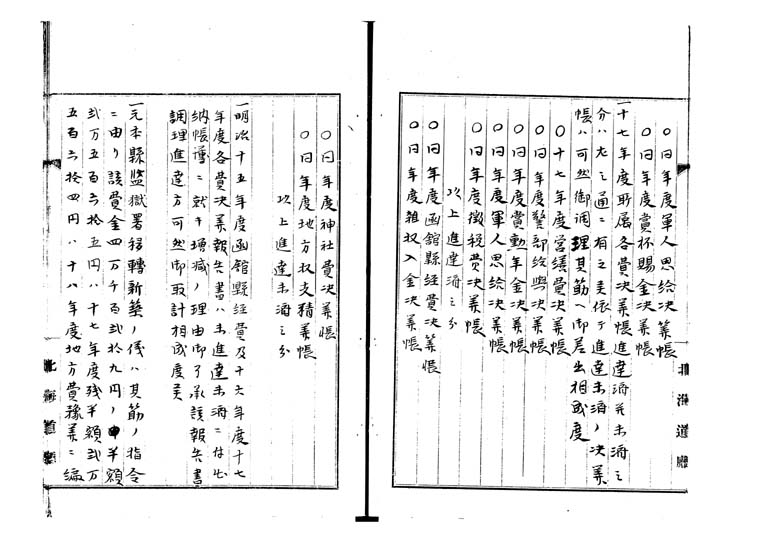 〇同年度軍人恩給決算帳
〇同年度賞杯賜金決算帳
一十七年度所属各費決算帳進達済并未済之
分ハ左之通ニ有之候条依テ進達未済ノ決算
帳ハ可然御調理其筋ヘ御差出相成度
〇十七年度営繕費決算帳
〇同年度警部給与決算帳
〇同年度賞勲年金決算帳
〇同年度軍人恩給決算帳
〇同年度徴税費決算帳
以上進達済之分
〇同年度函館縣経費決算帳
〇同年度雑収入金決算帳
北海道廳
〇同年度神社費決算帳
〇同年度地方収支精算帳
以上進達未済之分
一明治十五年度函館縣経費及十六年度十七
年度各費決算報告書ハ未進達未済ニ付出
納帳簿ニ就キ増減ノ理由御了承該報告書
調理進達方可然御取計相成度候
一元本縣監獄署移轉新築ノ儀ハ其筋ノ指令
ニ由リ該費金四万千百弐拾九円ノ中半額
弐万五百六拾五円ハ十七年度残半額弐万
五百六拾四円ハ十八年度地方費豫算ニ編
北海道廳